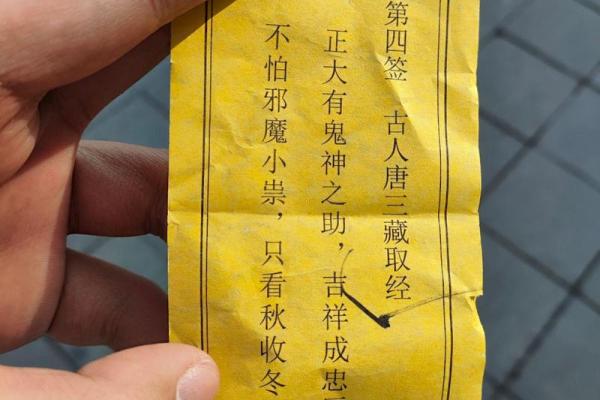 第四签　古人唐三藏取经
正大有鬼神之助，吉祥成忠
不怕邪魔小祟，只看秋收冬